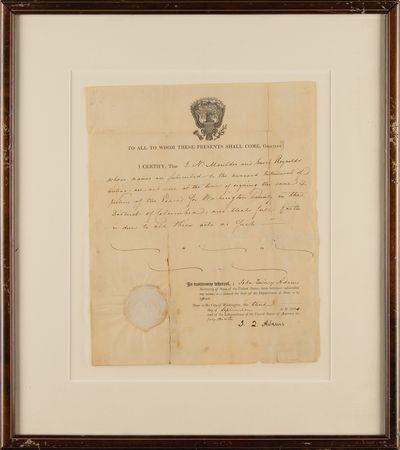 TO ALL TO WHOM THESE PRESENTS SHALL COME, GREETING:
I CERTIFY, That J. N. Moulder and Reynolds
whose names are subscribed to the annexed instrument of
writing, are and were at the time of signing the same
Justices of the Peace for Washington County in the
District of Columbia, and that full faith
is due to all their acts as such
In testimony whereof, I John Quincy Adams
Secretary of State of the United States, have hereunto subscribed
my name, and caused the Seal of the Department of State to be
affixed.
Done at the City of Washington, this third
day of September A. D.
and of the Independence of the United States of America the
forty
J. Q. Adams